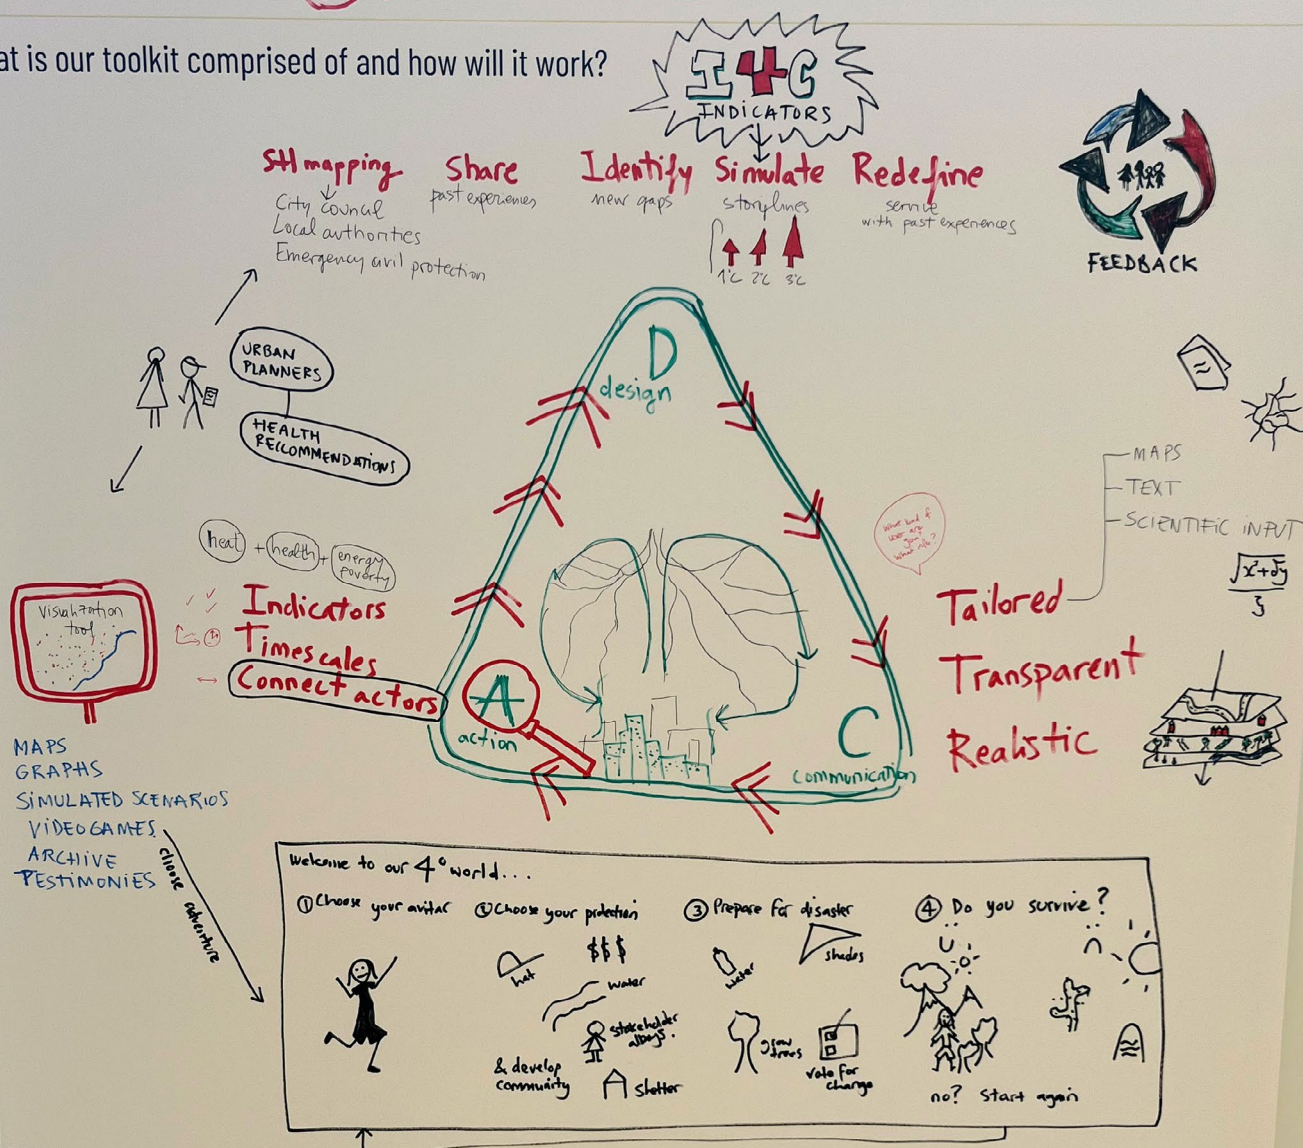 at is our toolkit comprised of and how will it work?
I4C
INDICATORS
SH mapping
City council
Local authorities
Emergency civil protection
Share
past experiences
Identify
new gaps
Simulate
storylines
1°C 2°C 3°C
Redefine
service
with past experiences
FEEDBACK
URBAN
PLANNERS
HEALTH
RECCOMMENDATIONS
D
design
MAPS
TEXT
SCIENTIFIC INPUT
What kind of
user are
you?
heat + health + energy
poverty
Visualization
tool
Indicators
Timescales
Connect actors
A
action
C
communication
Tailored
Transparent
Realistic
MAPS
GRAPHS
SIMULATED SCENARIOS
VIDEOGAMES
ARCHIVE
TESTIMONIES
choose adventure
Welcome to our 4° world...
① Choose your avitar
② Choose your protection
hat
$$$
water
stakeholder
& develop
community
shelter
③ Prepare for disaster
water
shades
grow
trees
vote for
change
④ Do you survive?
no? start again